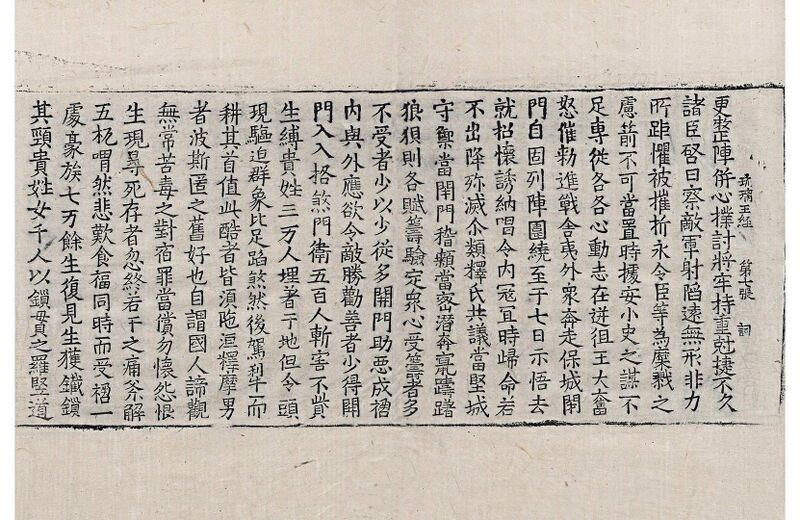 琉璃王經 第七張 詞
更整陣併心撲討將牢持重剋捷不久
諸臣啓曰察敵軍射陷遠無形非力
所距懼被摧折永令臣等為糜戮之
慮前不可當置時據安小史之謀不
足專從各各心動志在迸徂王大奮
怒催勅進戰舍夷外衆奔走保城閉
門自固列陣圍繞至于七日示悟去
就招懷誘納唱令內冦宜時歸命若
不出降殄滅尒類釋氏共議當堅城
守禦當開門稽顙當密潛奔竄躊躇
狼狽則各賦籌驗定衆心受籌者多
不受者少以少從多開門助惡成禍
內與外應欲令敵勝勸善者少得開
門入入格煞門衛五百人斬害不貲
生縛貴姓三万人埋著于地但令頭
現驅迫群象比足蹈煞然後駕犁而
耕其首值此酷者皆須陁洹釋摩男
者波斯匿之舊好也自謂國人諦觀
無常苦毒之對宿罪當償勿懷怨恨
生現辱死存者忽終若干之痛荼解
五杌喟然悲歎食福同時而受禍一
處豪族七万餘生復見生獲鐵鎖
其頸貴姓女千人以鎖毋貫之羅堅道